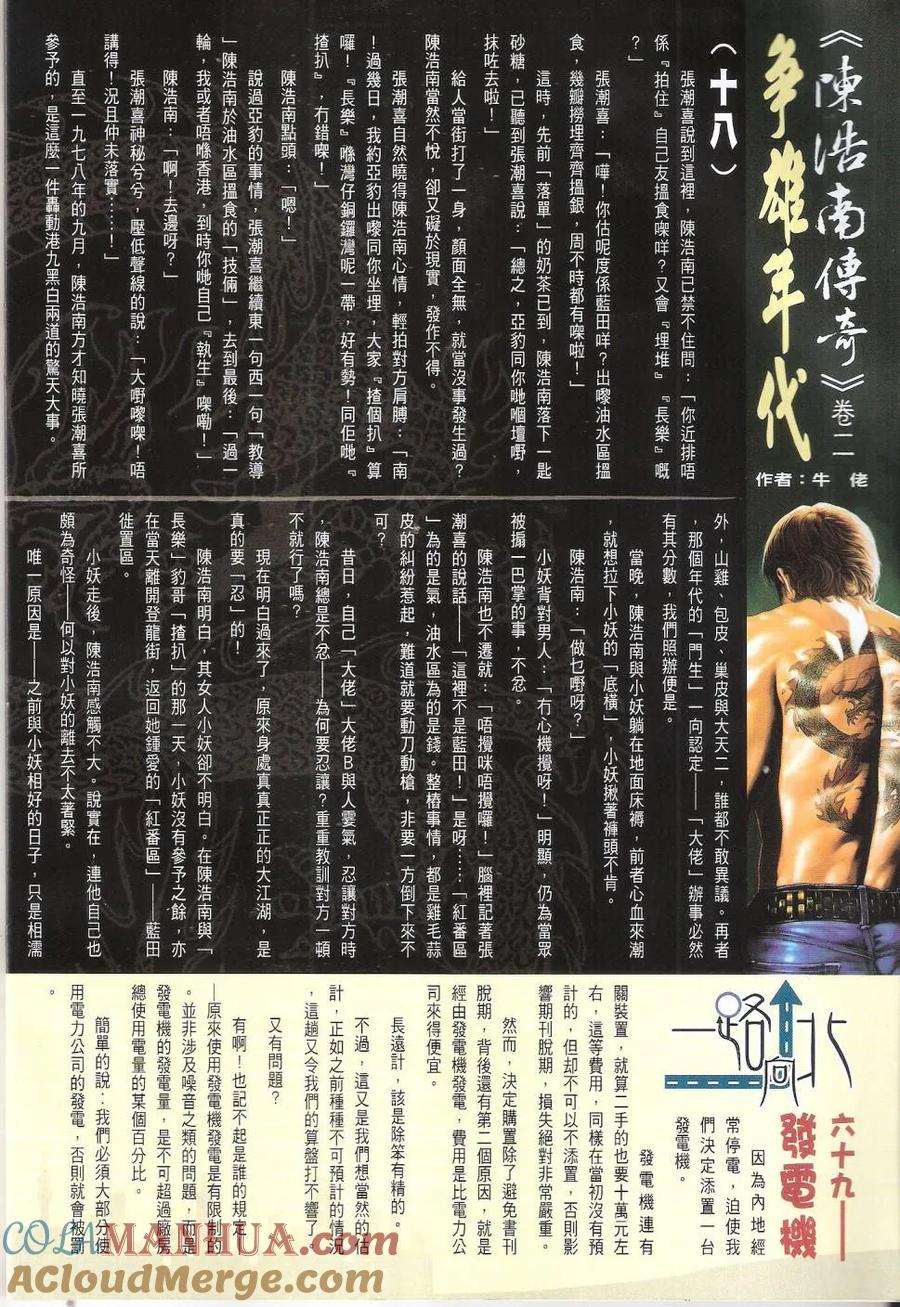 《陳浩南傳奇》卷二
爭雄年代
作者：牛佬
（十八）
張潮喜說到這裡，陳浩南已禁不住問：「你近排唔
係『拍住』自己友搵食㗎咩？又會『埋堆』『長樂』嘅
？」
張潮喜：「嘩！你估呢度係藍田咩？出嚟油水區搵
食，幾瓣撈埋齊齊搵銀，周不時都有㗎啦！」
這時，先前「落單」的奶茶已到，陳浩南落下一匙
砂糖，已聽到張潮喜說：「總之，亞豹同你哋嗰壇嘢，
抹咗去啦！」
給人當街打了一身，顏面全無，就當沒事發生過？
陳浩南當然不悅，卻又礙於現實，發作不得。
張潮喜自然曉得陳浩南心情，輕拍對方肩膊：「南
！過幾日，我約亞豹出嚟同你坐埋，大家『揸個扒』算
囉！『長樂』喺灣仔銅鑼灣呢一帶，好有勢！同佢哋『
揸扒』，冇錯㗎！」
陳浩南點頭：「嗯！」
說過亞豹的事情，張潮喜繼續東一句西一句「教導
」陳浩南於油水區搵食的「技倆」，去到最後：「過一
輪，我或者唔喺香港，到時你哋自己『執生』㗎嘞！」
陳浩南：「啊！去邊呀？」
張潮喜神秘兮兮，壓低聲線的說：「大嘢嚟㗎！唔
講得！況且仲未落實……！」
直至一九七八年的九月，陳浩南方才知曉張潮喜所
參予的，是這麼一件轟動港九黑白兩道的驚天大事。
外，山雞、包皮、巢皮與大天二，誰都不敢異議。再者
，那個年代的「門生」一向認定——「大佬」辦事必然
有其分數，我們照辦便是。
當晚，陳浩南與小妖躺在地面床褥，前者心血來潮
，就想拉下小妖的「底橫」，小妖揪著褲頭不肯。
陳浩南：「做乜嘢呀？」
小妖背對男人：「冇心機攪呀！」明顯，仍為當眾
被搧一巴掌的事，不忿。
陳浩南也不遷就：「唔攪咪唔攪囉！」腦裡記著張
潮喜的說話——「這裡不是藍田！」是呀……「紅番區
」為的是氣，油水區為的是錢。整樁事情，都是雞毛蒜
皮的糾紛惹起，難道就要動刀動槍，非要一方倒下來不
可？
昔日，自己「大佬」大佬Ｂ與人雯氣，忍讓對方時
，陳浩南總是不忿——為何要忍讓？重重教訓對方一頓
不就行了嗎？
現在明白過來了，原來身處真真正正的大江湖，是
真的要「忍」的！
陳浩南明白，其女人小妖卻不明白。在陳浩南與「
長樂」豹哥「揸扒」的那一天，小妖沒有參予之餘，亦
在當天離開登龍街，返回她鍾愛的「紅番區」——藍田
徙置區。
小妖走後，陳浩南感觸不大。說實在，連他自己也
頗為奇怪——何以對小妖的離去不太著緊。
唯一原因是——之前與小妖相好的日子，只是相濡
一路向北
六十九——
發電機
因為內地經
常停電，迫使我
們決定添置一台
發電機。
發電機連有
關裝置，就算二手的也要十萬元左
右，這等費用，同樣在當初沒有預
計的，但却不可以不添置，否則影
響期刊脫期，損失絕對非常嚴重。
然而，決定購置除了避免書刊
脫期，背後還有第二個原因，就是
經由發電機發電，費用是比電力公
司來得便宜。
長遠計，該是除笨有精的。
不過，這又是我們想當然的估
計，正如之前種種不可預計的情況
，這趟又令我們的算盤打不響了。
又有問題？
有啊！也記不起是誰的規定—
—原來使用發電機發電是有限制的
。並非涉及噪音之類的問題，而是
發電機的發電量，是不可超過廠房
總使用電量的某個百分比。
簡單的說：我們必須大部分使
用電力公司的發電，否則就會被罰
。
COLAMANHUA.com
ACloudMerge.com